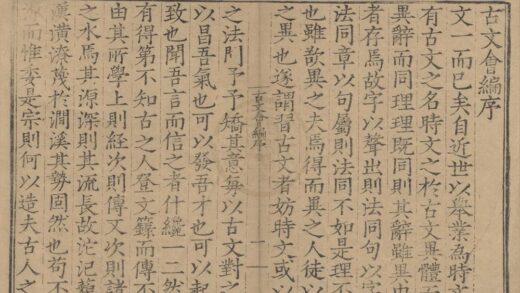 古文會編序
文一而已矣自近世以舉業為時
有古文之名時文之於古文異體
異辭而同理理既同則其辭雖異
者存焉故字以聲出則法同句以字
法同章以句屬則法同不如是不
也雖歆異之夫焉得而異之人徒以
之異也遂謂習古文者妨時文或以
古文會編序
一
之法則予予矯其意每以古文對之
以昌吾氣也可以發吾才也可以起
致也聞吾言而信之者什纔一二然
有得第不知古之人登文籙而傳不
由其所學上則経次則傳又次則諸
之水焉其源深則其流長故茫汜
蕩潢潦蔑於澗溪其勢固然也苟不
而惟李是宗則何以造夫古人之